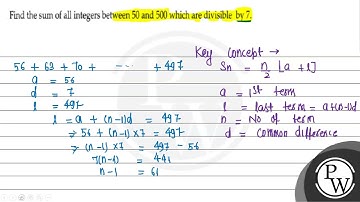 Find the sum of all integers between 50 and 500 which are divisible by 7.
Key concept →
56 + 63 + 70 + - - - - + 497
Sn = n/2 [a + l]
a = 56
d = 7
a = 1st term
l = 497
l = last term = a+(n-1)d
l = a + (n-1)d = 497
n = No of term
⇒ 56 + (n-1) × 7 = 497
d = common difference
⇒ (n-1) × 7 = 497 - 56
7(n-1) = 441
n-1 = 61
PW